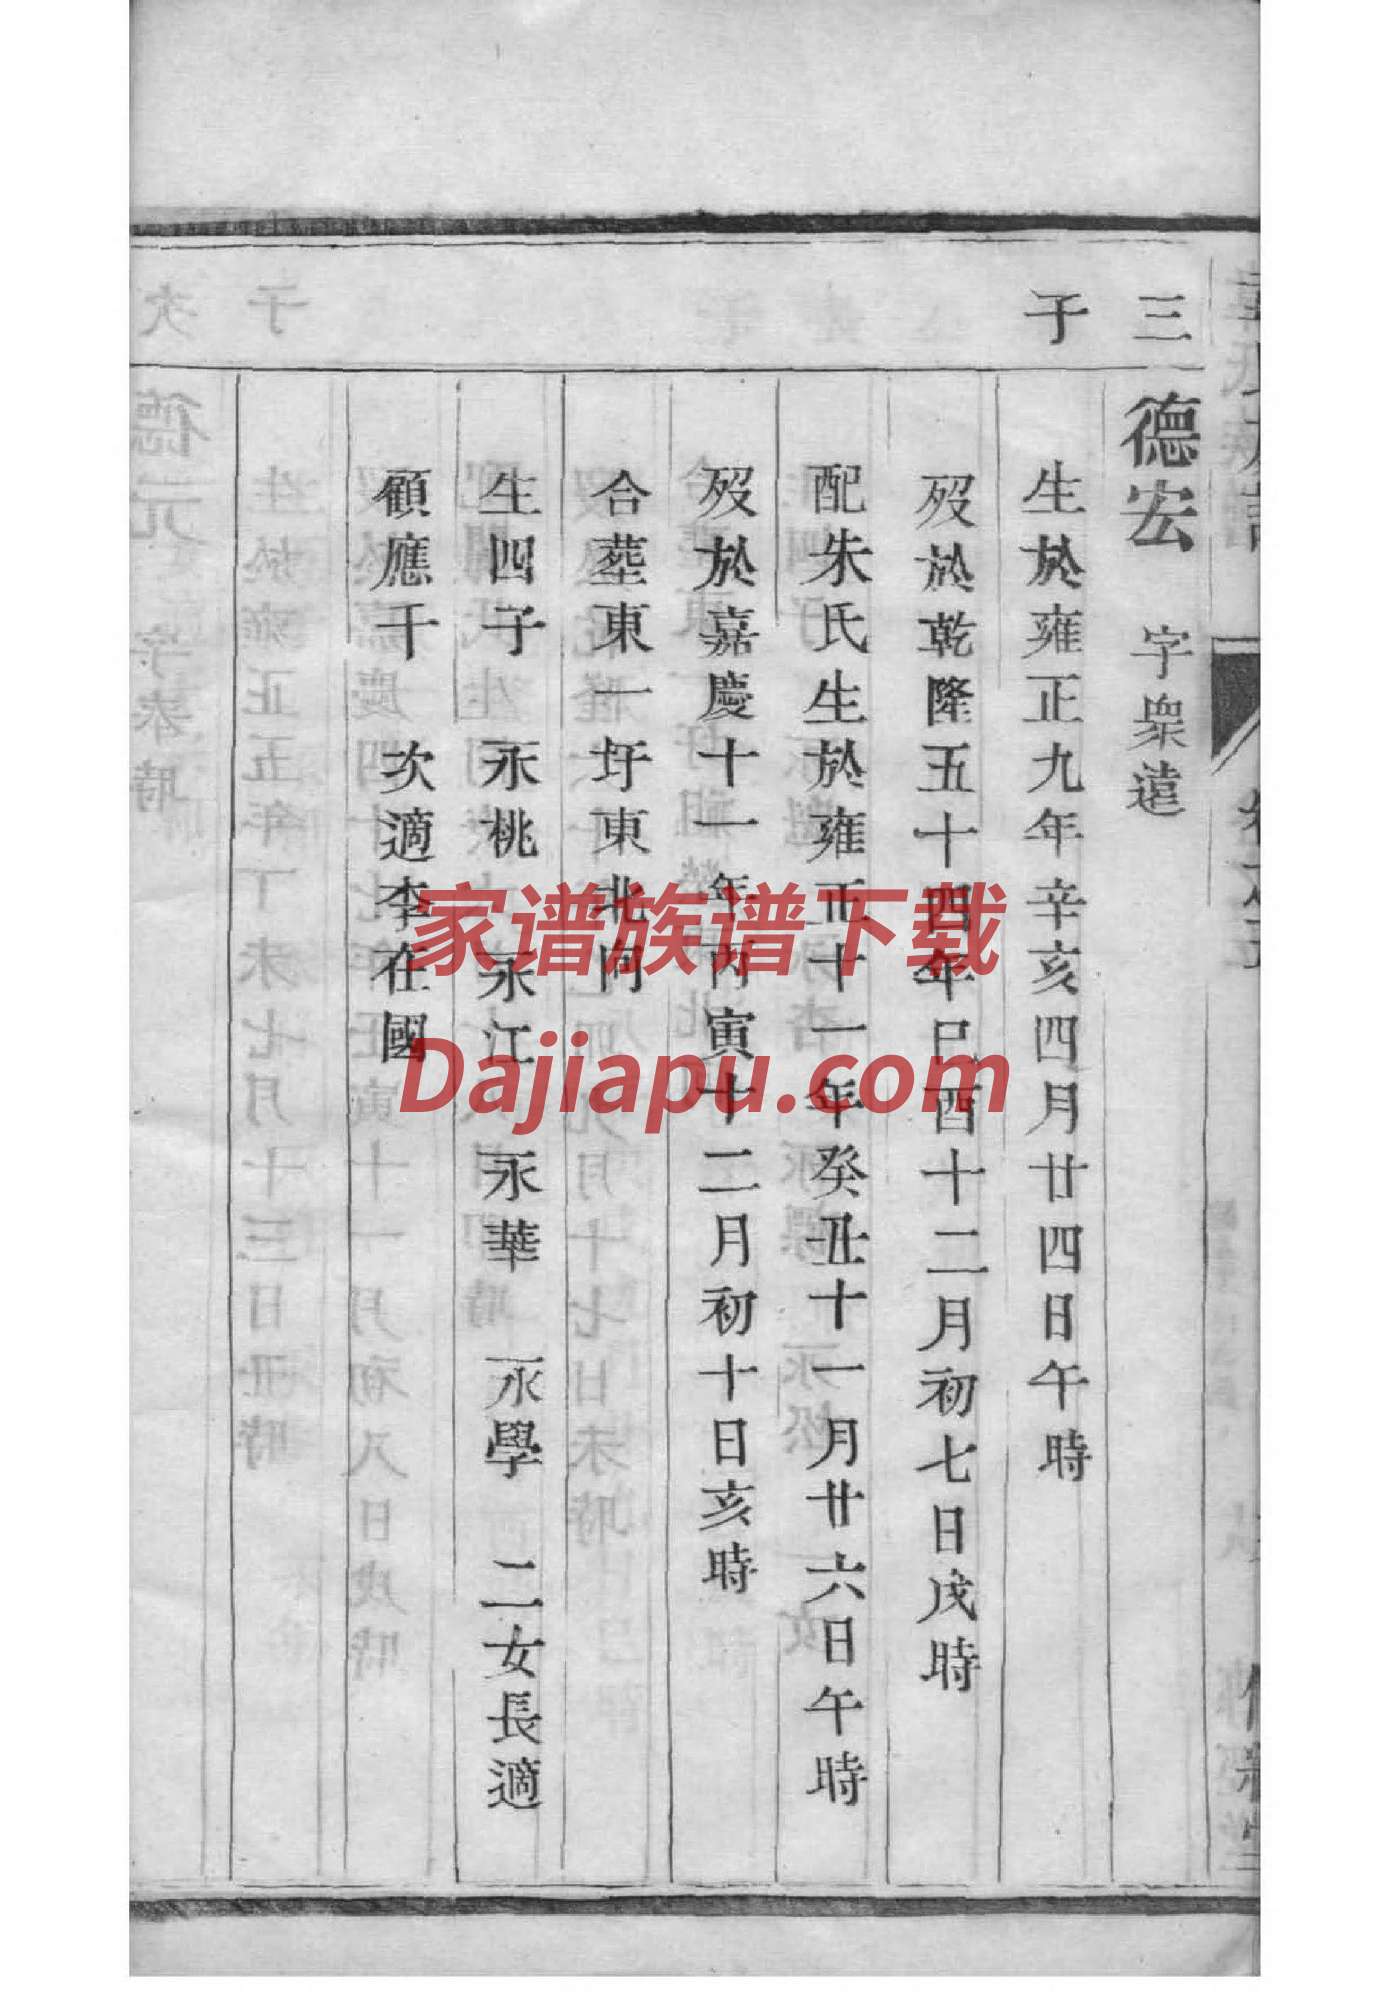 三
子
德宏 字衆遠
生於雍正九年辛亥四月廿四日午時
歿於乾隆五十四年己酉十二月初七日戌時
配朱氏生於雍正十一年癸丑十一月廿六日午時
歿於嘉慶十一年丙寅十二月初十日亥時
合葬東一圩東北向
生四子 永桃 永江 永華 永學 二女長適
顧應千 次適李在國
家谱族谱下载
Dajiapu.com